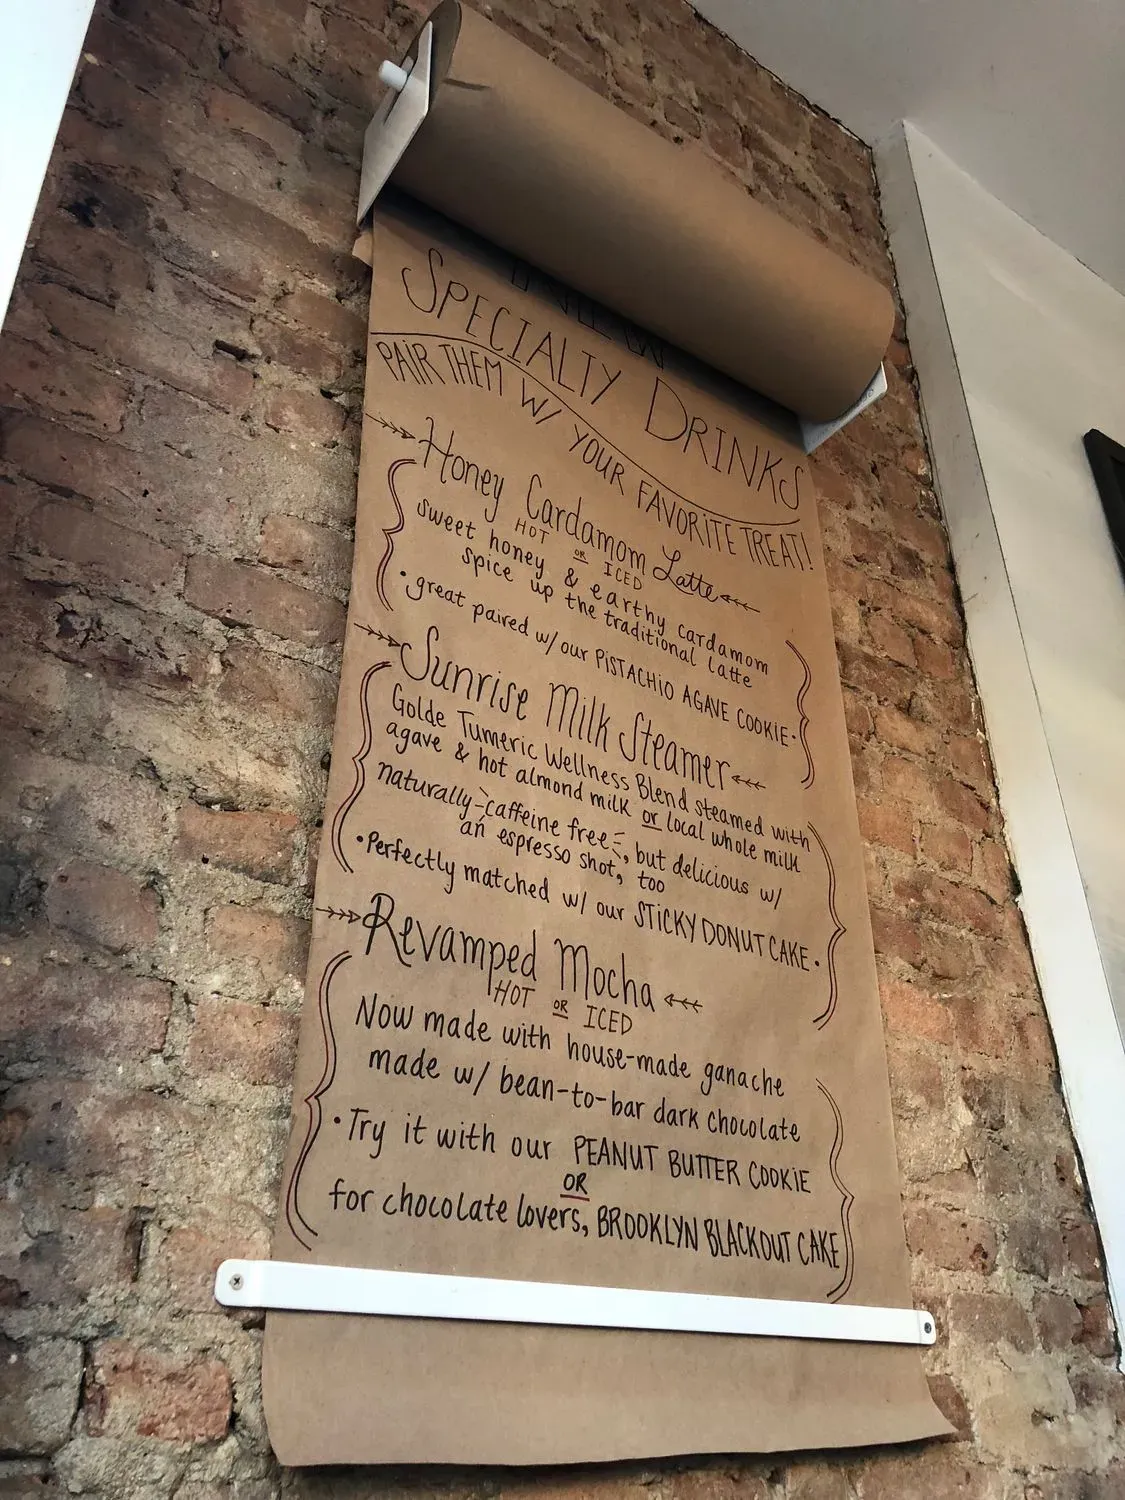 SPECIALTY DRINKS
PAIR THEM W/ YOUR FAVORITE TREAT!
Honey Cardamom Latte
HOT OR ICED
sweet honey & earthy cardamom
spice up the traditional latte
• great paired w/ our PISTACHIO AGAVE COOKIE •
Sunrise Milk Steamer
Golde Tumeric Wellness Blend steamed with
agave & hot almond milk or local whole milk
naturally caffeine free, but delicious w/
an espresso shot, too
• Perfectly matched w/ our STICKY DONUT CAKE •
Revamped Mocha
HOT OR ICED
Now made with house-made ganache
made w/ bean-to-bar dark chocolate
• Try it with our PEANUT BUTTER COOKIE
OR
for chocolate lovers, BROOKLYN BLACKOUT CAKE